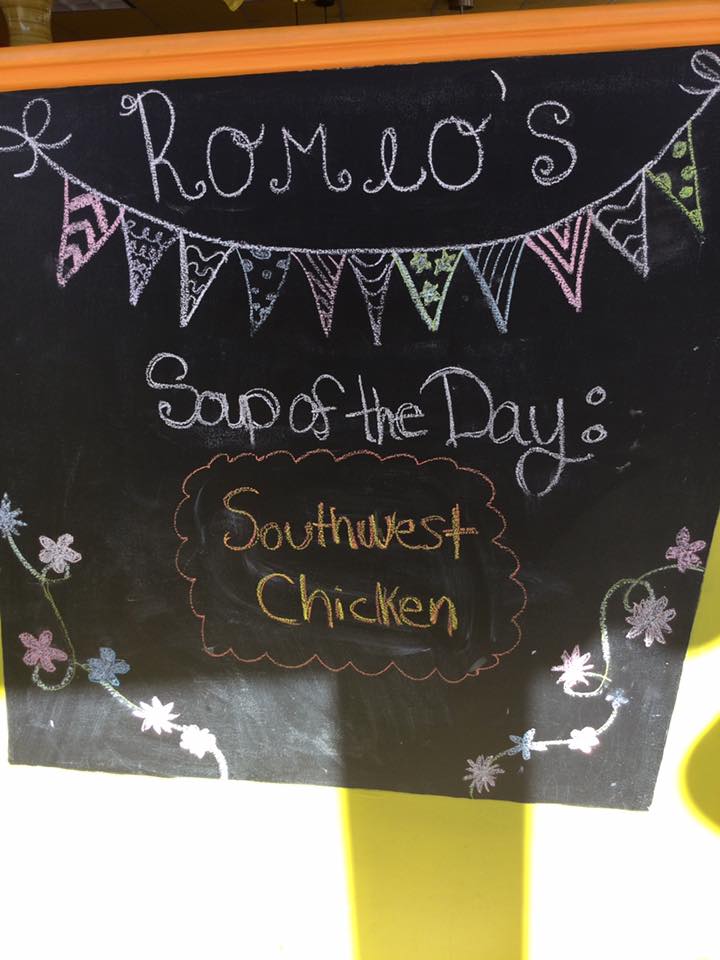 Romeo's
Soup of the Day:
Southwest
Chicken